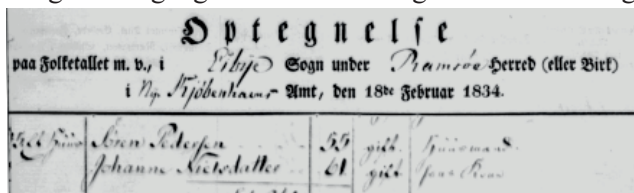 Optegnelse
paa Folketallet m. v., i Ejbye Sogn under Ramsøe Herred (eller Birk)
i Nye Kjøbenhavns Amt, den 18de Februar 1834.
Et Huus Søren Pedersen 55 gift Huusmand
Johanne Nielsdatter 61 gift hans Kone